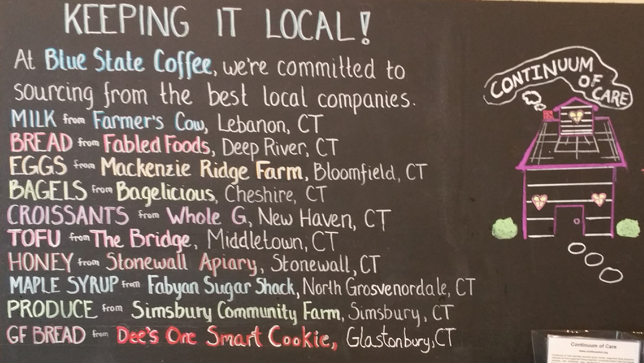 KEEPING IT LOCAL!
At Blue State Coffee, we're committed to
sourcing from the best local companies.
MILK from Farmer's Cow, Lebanon, CT
BREAD from Fabled Foods, Deep River, CT
EGGS from Mackenzie Ridge Farm, Bloomfield, CT
BAGELS from Bagelicious, Cheshire, CT
CROISSANTS from Whole G, New Haven, CT
TOFU from The Bridge, Middletown, CT
HONEY from Stonewall Apiary, Stonewall, CT
MAPLE SYRUP from Fabyan Sugar Shack, North Grosvenordale, CT
PRODUCE from Simsbury Community Farm, Simsbury, CT
GF BREAD from Dee's One Smart Cookie, Glastonbury, CT
CONTINUUM
OF
CARE
Continuum of Care